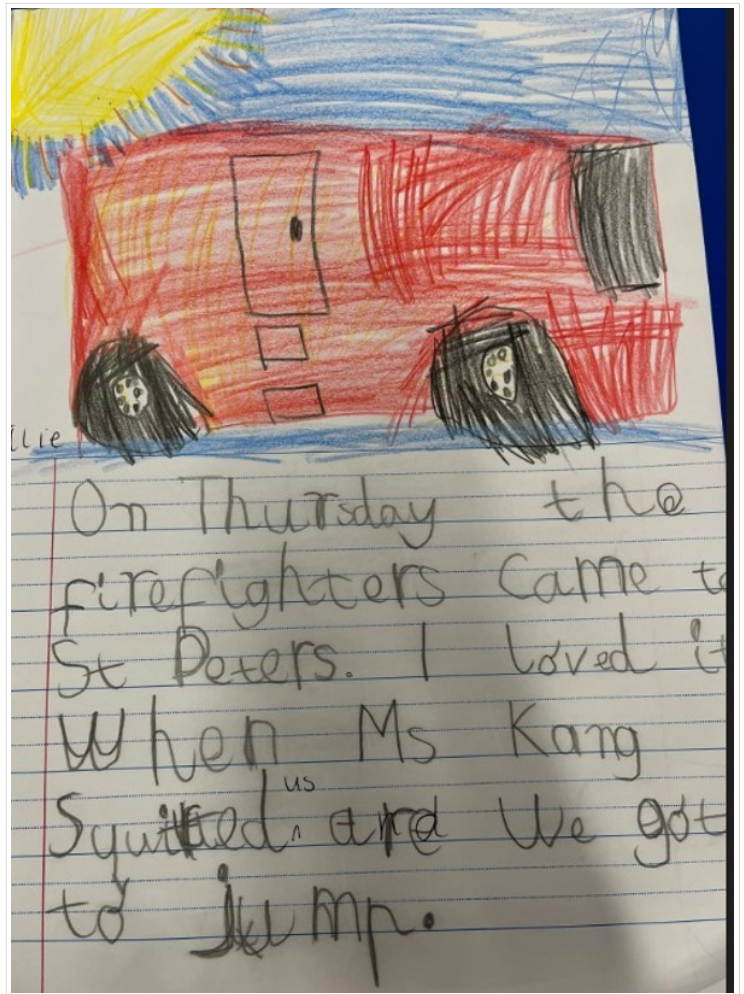 llie
On Thursday the
firefighters came to
St Peters. I loved it
When Ms Kang
us
Squirted ^ and We got
to jump.